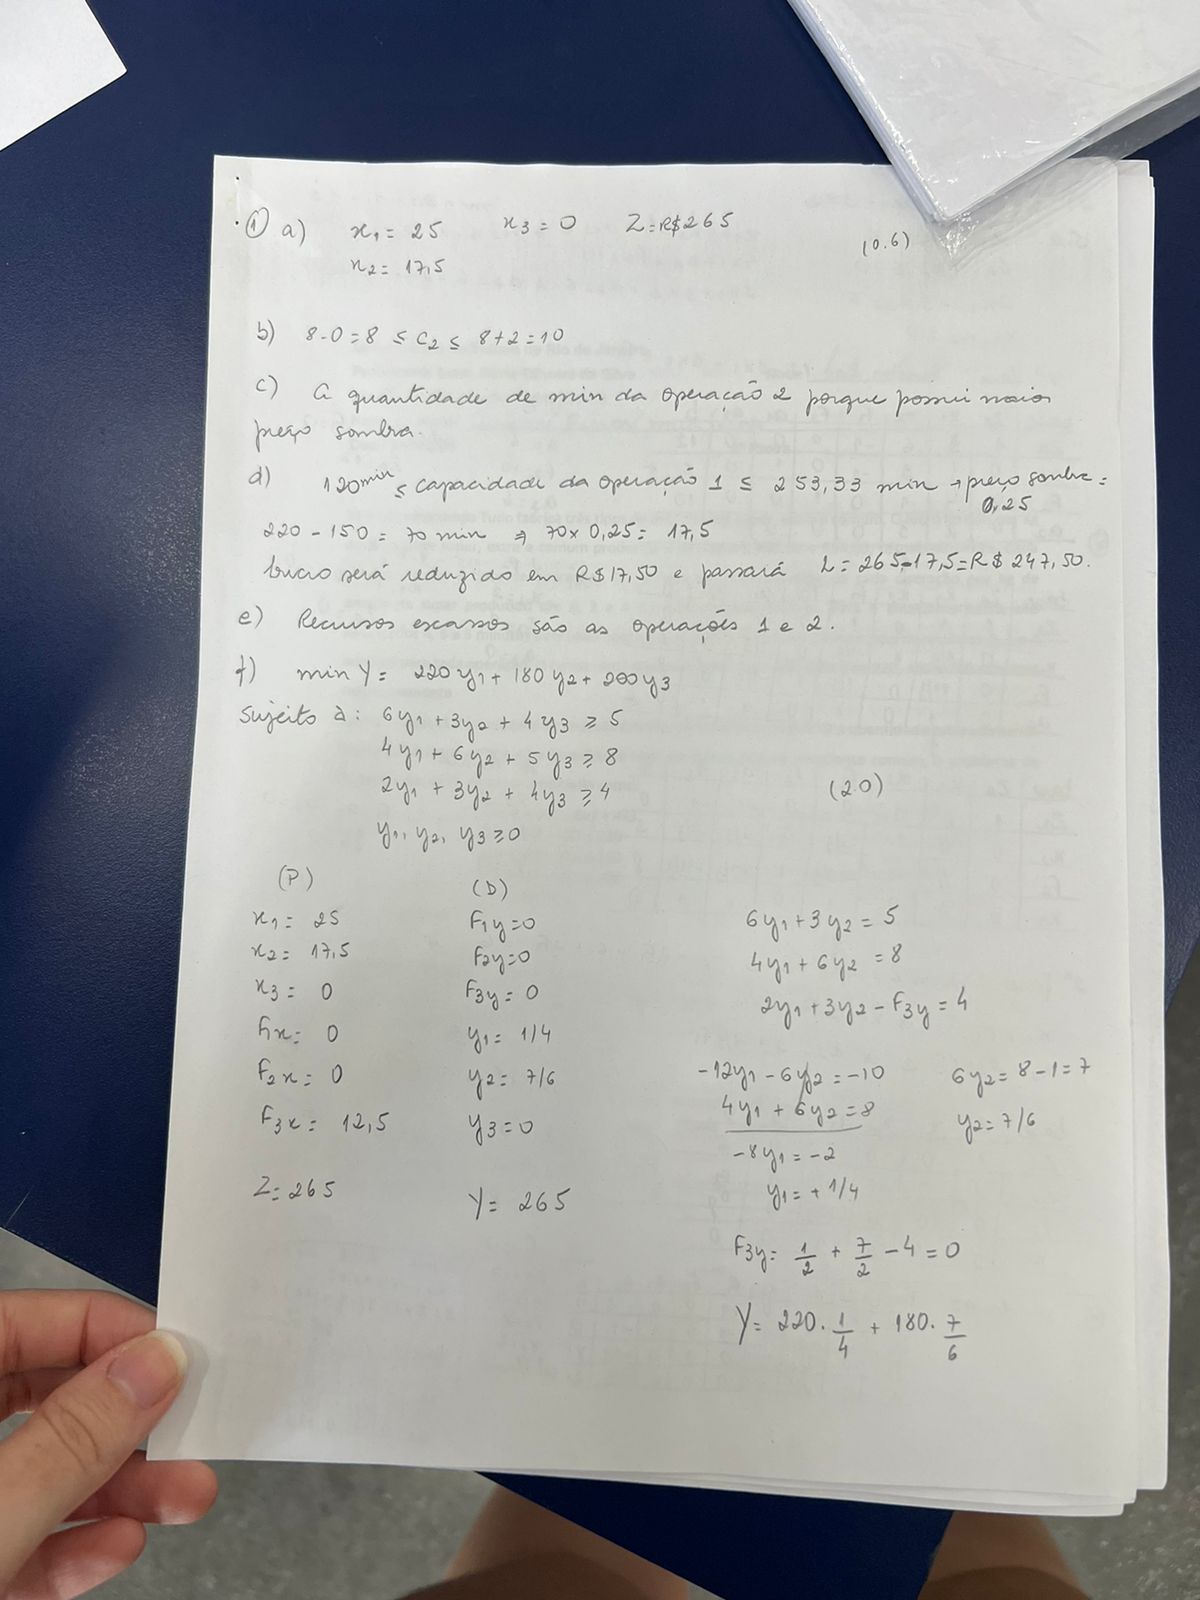 ① a) x1 = 25 x3 = 0 Z = R$ 265
x2 = 17,5 (0.6)
b) 8 - 0 = 8 ≤ C2 ≤ 8 + 2 = 10
c) A quantidade de min da operação 2 porque possui maior
preço sombra.
d) 120 min ≤ capacidade da operação 1 ≤ 253,33 min → preço sombra =
0,25
220 - 150 = 70 min ⇒ 70 x 0,25 = 17,5
lucro será reduzido em R$ 17,50 e passará L = 265 - 17,5 = R$ 247,50.
e) Recursos escassos são as operações 1 e 2.
f) min Y = 220 y1 + 180 y2 + 200 y3
Sujeito à: 6y1 + 3y2 + 4y3 ≥ 5
4y1 + 6y2 + 5y3 ≥ 8
2y1 + 3y2 + 4y3 ≥ 4 (2.0)
y1, y2, y3 ≥ 0
(P) (D)
x1 = 25 F1y = 0 6y1 + 3y2 = 5
x2 = 17,5 F2y = 0 4y1 + 6y2 = 8
x3 = 0 F3y = 0 2y1 + 3y2 - F3y = 4
F1x = 0 y1 = 1/4
F2x = 0 y2 = 7/6 -12y1 - 6y2 = -10 6y2 = 8 - 1 = 7
F3x = 12,5 y3 = 0 4y1 + 6y2 = 8 y2 = 7/6
-8y1 = -2
Z = 265 Y = 265 y1 = + 1/4
F3y = 1/2 + 7/2 - 4 = 0
Y = 220 . 1/4 + 180 . 7/6